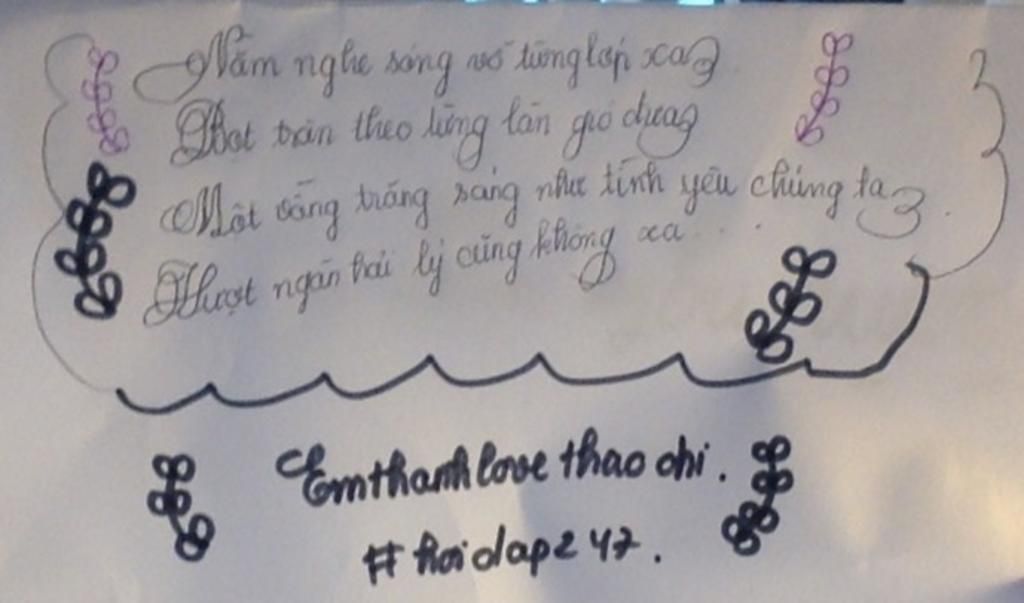 Nằm nghe sóng vỗ từng lớp xa
Bọt tràn theo từng làn gió đưa
Một vầng trăng sáng như tình yêu chúng ta
Vượt ngàn hải lý cũng không xa . . .
Emthanh love thao chi .
# hoidap247 .